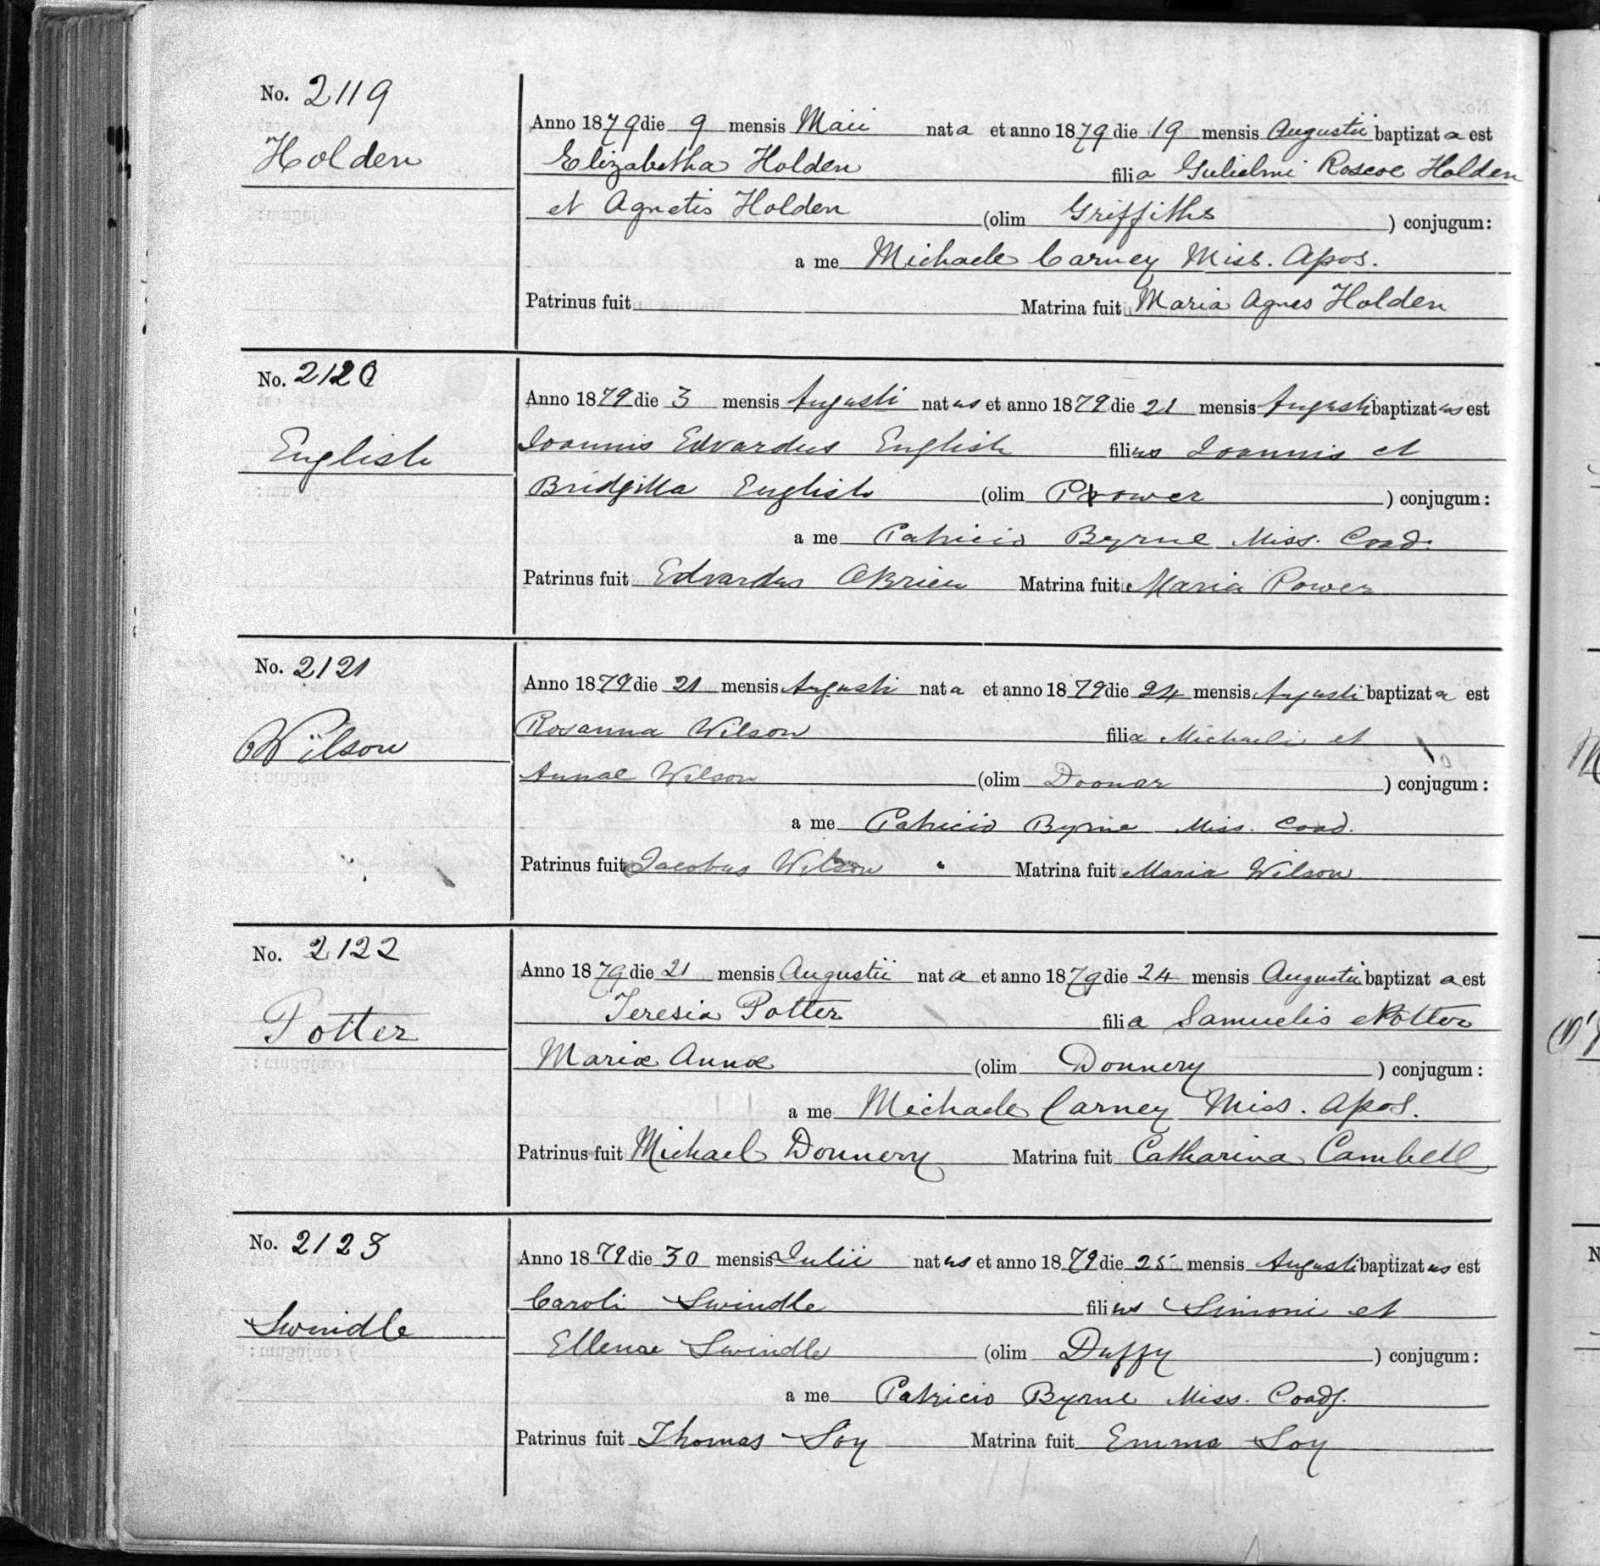 No. 2119
Holden
Anno 1879 die 9 mensis Maii nata et anno 1879 die 19 mensis Augustii baptizata est
Elizabetha Holden filia Gulielmi Roscoe Holden
et Agnetis Holden (olim Griffiths ) conjugum:
a me Michaele Carney Miss. Apos.
Patrinus fuit Matrina fuit Maria Agnes Holden
No. 2120
English
Anno 1879 die 3 mensis Augusti natus et anno 1879 die 21 mensis Augusti baptizatus est
Joannis Edvardus English filius Joannis et
Bridgitta English (olim Power ) conjugum:
a me Patricio Byrne Miss. Coad.
Patrinus fuit Edvardus OBrien Matrina fuit Maria Power
No. 2121
Wilson
Anno 1879 die 21 mensis Augusti nata et anno 1879 die 24 mensis Augusti baptizata est
Rosanna Wilson filia Michaeli et
Annae Wilson (olim Doonar ) conjugum:
a me Patricio Byrne Miss. Coad.
Patrinus fuit Jacobus Wilson Matrina fuit Maria Wilson
No. 2122
Potter
Anno 1879 die 21 mensis Augustii nata et anno 1879 die 24 mensis Augustii baptizata est
Teresia Potter filia Samuelis Potter
Mariæ Annæ (olim Donnery ) conjugum:
a me Michaele Carney Miss. Apos.
Patrinus fuit Michael Donnery Matrina fuit Catharina Cambell
No. 2123
Swindle
Anno 1879 die 30 mensis Julii natus et anno 1879 die 25 mensis Augusti baptizatus est
Caroli Swindle filius Simoni et
Ellenae Swindle (olim Duffy ) conjugum:
a me Patricio Byrne Miss. Coadj.
Patrinus fuit Thomas Soy Matrina fuit Emma Soy